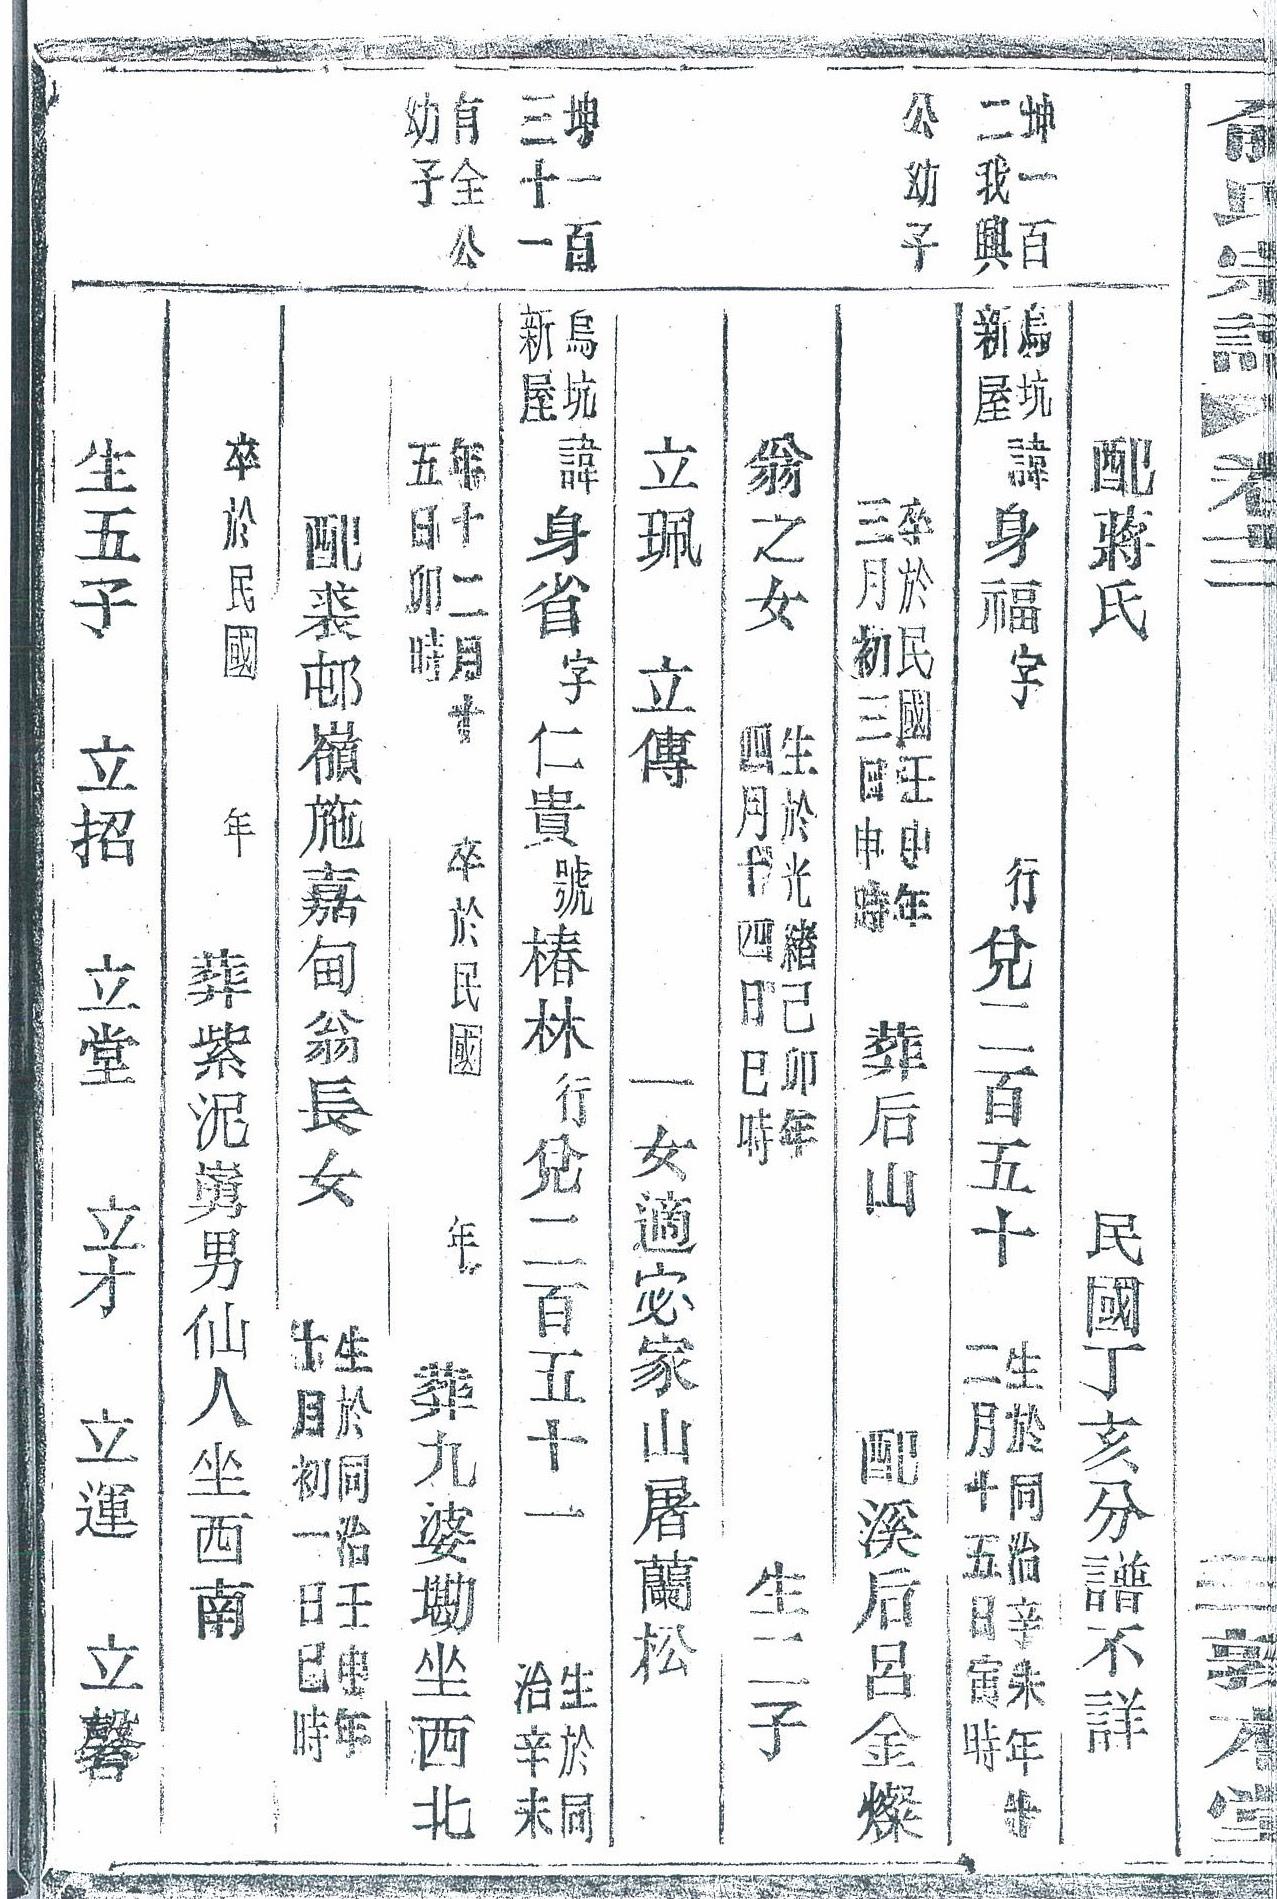 俞氏宗譜 卷二 三 敦本堂
配蔣氏 民國丁亥分譜不詳
坤一百
二我興
烏坑
新屋
諱身福字 行兌二百五十
生於同治辛未年十
二月十五日寅時
公幼子
卒於民國壬申年
三月初三日申時
葬后山 配溪后呂金燦
翁之女
生於光緒己卯年
四月廿四日巳時
生二子
立珮 立傳 一女適宓家山屠蘭松
坤一百
三十一
烏坑
新屋
諱身省字仁貴號椿林行兌二百五十一
生於同
治辛未
有全公
幼子
年十二月十
五日卯時
卒於民國 年 葬九婆墈坐西北
配裘邨嶺施嘉甸翁長女
生於同治壬申年
十月初一日巳時
卒於民國 年 葬紫泥男仙人坐西南
生五子 立招 立堂 立才 立運 立馨